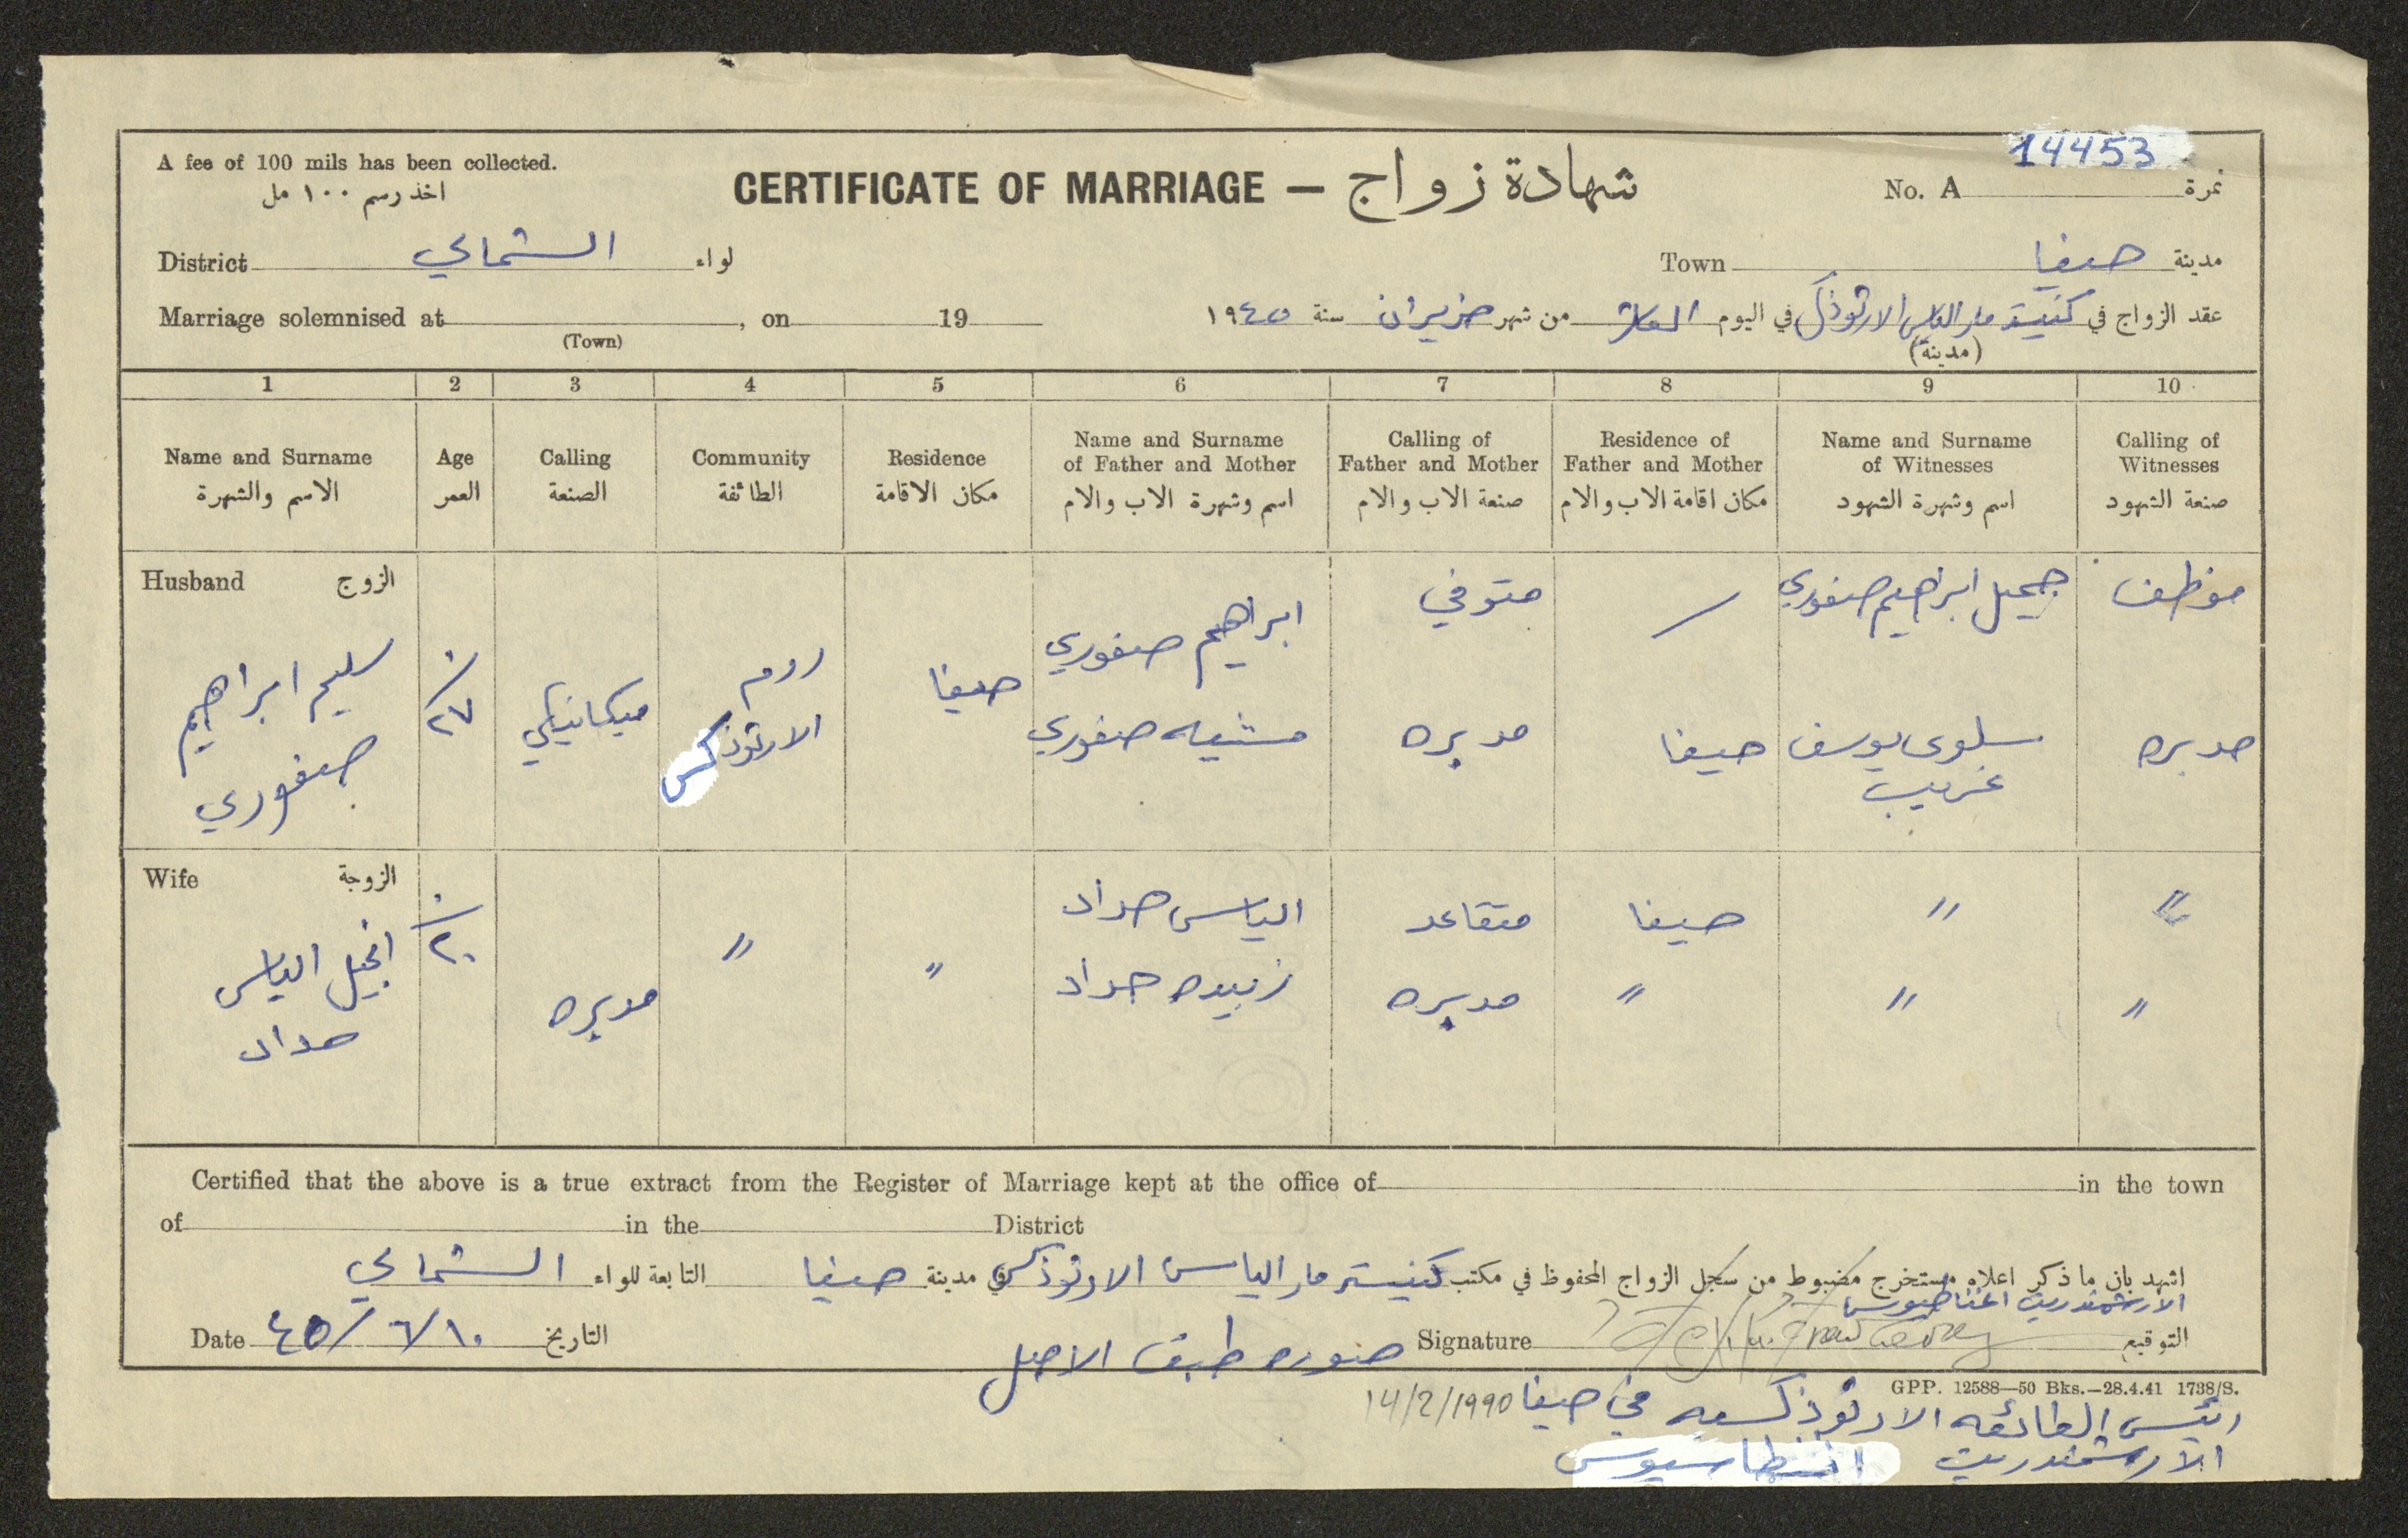 14453
A fee of 100 mils has been collected.
اخذ رسم ١٠٠ مل
CERTIFICATE OF MARRIAGE — شهادة زواج
No. A نمرة
District الشمالي لواء
Town حيفا مدينة
Marriage solemnised at , on 19
(Town)
عقد الزواج في كنيسة مار الياس الارثوذكس في اليوم العاشر من شهر حزيران سنة ١٩٤٥
(مدينة)
1 2 3 4 5 6 7 8 9 10
Name and Surname الاسم والشهرة
Age العمر
Calling الصنعة
Community الطائفة
Residence مكان الاقامة
Name and Surname of Father and Mother اسم وشهرة الاب والام
Calling of Father and Mother صنعة الاب والام
Residence of Father and Mother مكان اقامة الاب والام
Name and Surname of Witnesses اسم وشهرة الشهود
Calling of Witnesses صنعة الشهود
Husband الزوج
سليم ابراهيم
صفوري
٢٧
ميكانيكي
روم
الارثوذكس
حيفا
ابراهيم صفوري
صفوري
متوفي
مدبره
حيفا
جميل ابراهيم صفوري
سلوى يوسف
غريب
موظف
مدبره
Wife الزوجة
انجيل الياس
حداد
٢٠
مدبره
〃
〃
الياس حداد
زبيده حداد
متقاعد
مدبره
حيفا
〃
〃
〃
〃
〃
Certified that the above is a true extract from the Register of Marriage kept at the office of in the town
of in the District
اشهد بان ما ذكر اعلاه مستخرج مضبوط من سجل الزواج المحفوظ في مكتب كنيسة مار الياس الارثوذكس في مدينة حيفا التابعة للواء الشمالي
الارشمندريت اغناطيوس
Date ٤٥/٦/١٠ التاريخ
Signature التوقيع
صوره طبق الاصل
GPP. 12588—50 Bks.—28.4.41 1738/S.
رئيس الطائفه الارثوذكسيه في حيفا 14/2/1990
الارشمندريت